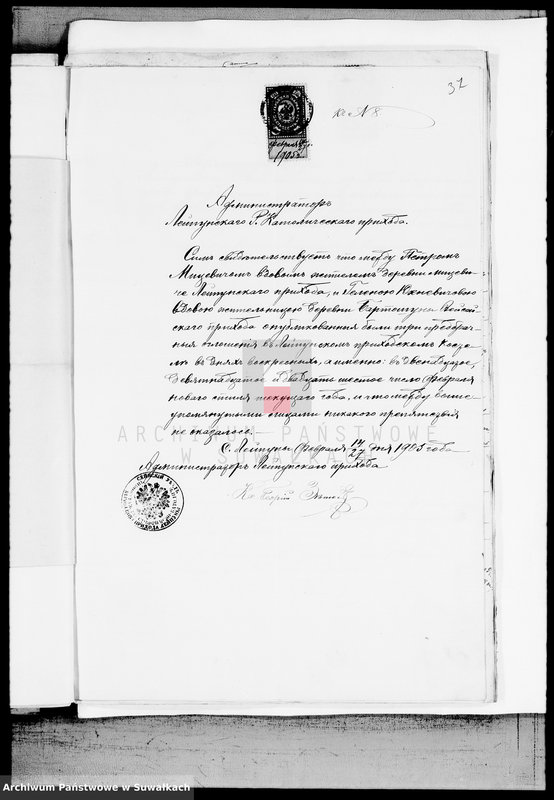 37
к № 8
Февраля
1905
Администраторъ
Лейпунскаго Р. Католическаго прихода.
Симъ свидѣтельствуетъ что между Петромъ
Мицевичемъ вдовымъ жителемъ деревни Мицеви-
че Лейпунскаго прихода, и Еленою
вдовою жительницею деревни Бартошуны Сейсій-
скаго прихода опубликованныя были три предбрач-
ныя оглашенія въ Лейпунскомъ приходскомъ Косте-
лѣ въ дняхъ воскресныхъ, а именно: въ двенадцатое,
девятнадцатое и двадцать шестое число Февраля
новаго стиля текущаго года, и что между выше-
упомянутыми лицами никакого препятствія
не оказалось.
С. Лейпуны Февраля 14/27 дня 1905 года
Администраторъ Лейпунскаго прихода
Кс.
ARCHIWUM PAŃSTWOWE
W SUWAŁKACH
Archiwum Państwowe w Suwałkach